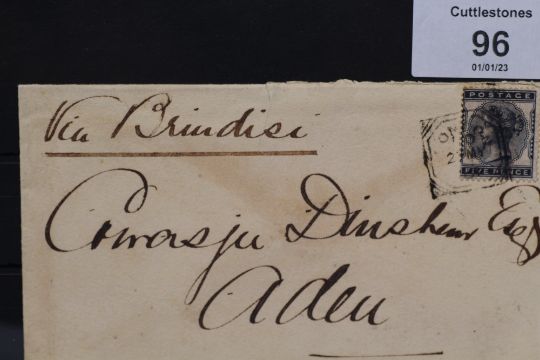 Cuttlestones
96
01/01/23
Via Brindisi
POSTAGE
FIVE PENCE
Cowasju Dinshaw Esq
Aden